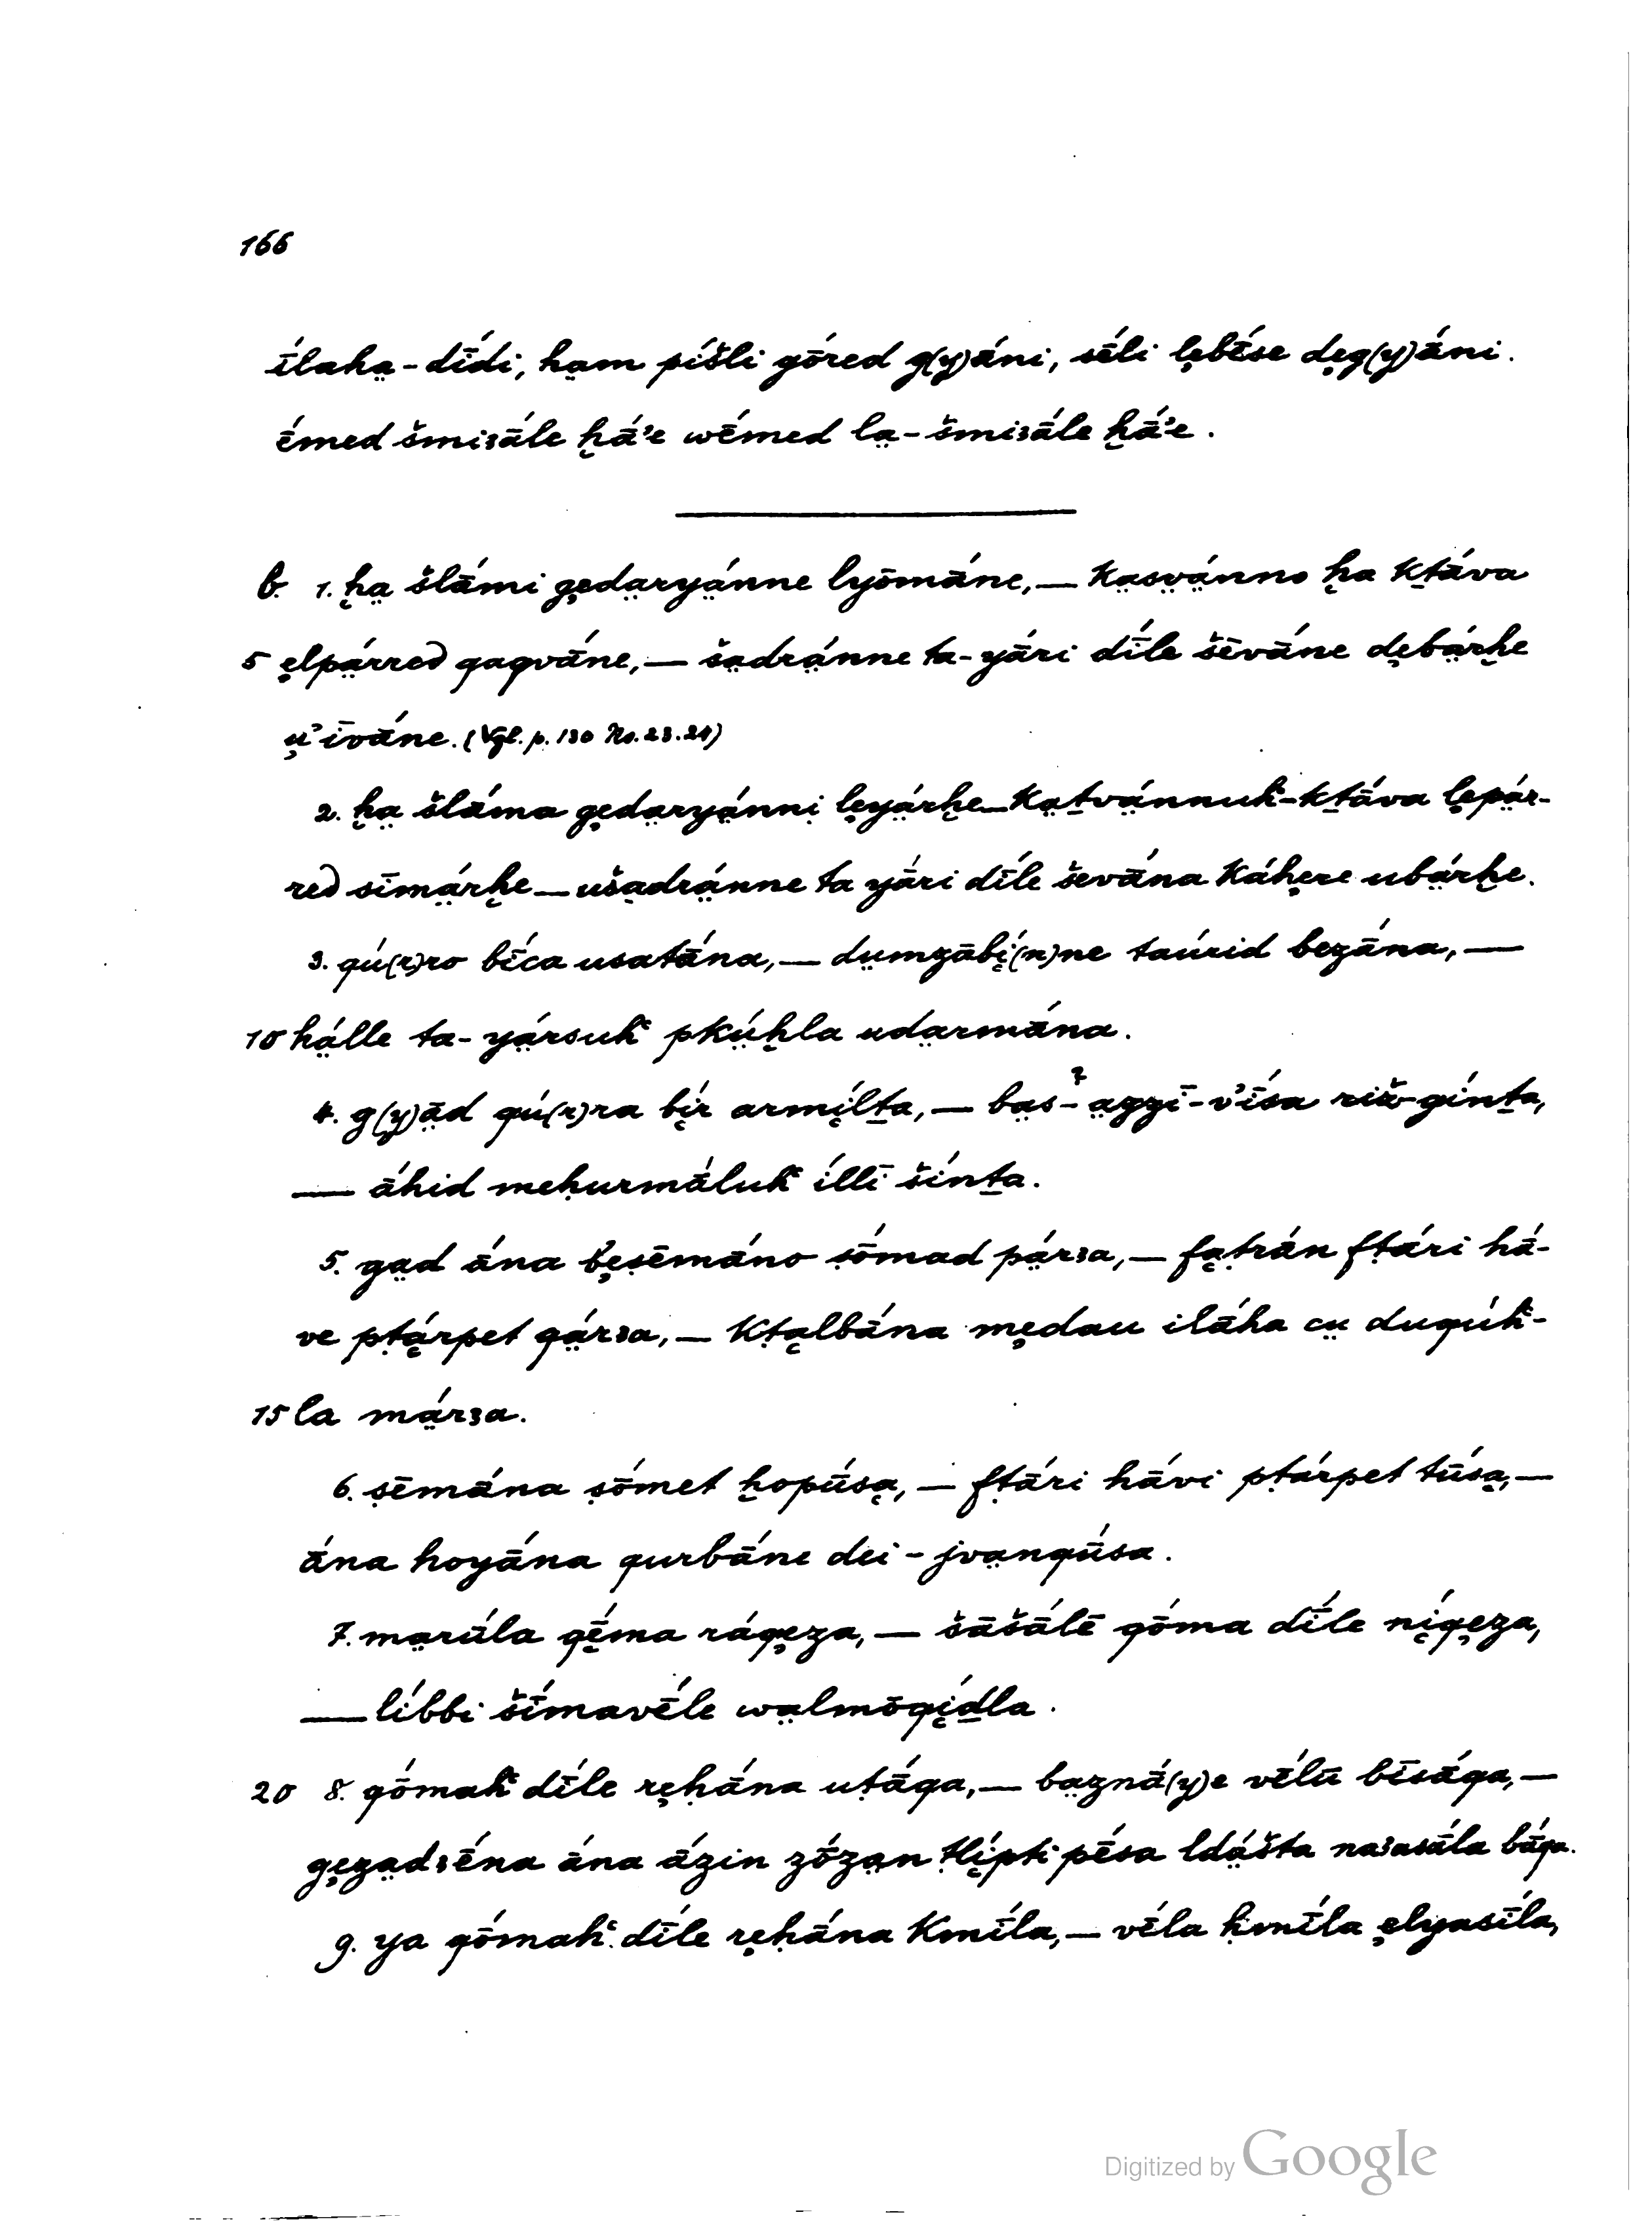 166
ī́laha̤-dī́di, ha̤m píšli gṓred g(y)ā́ni, sḗli ļebḗse dȩg(y)ā́ni.
ḗmed šmiꜣā́le ḫā́'e wḗmed la̤-šmiꜣā́le ḫā́'e.
b. 1. ḫa̤ šlā́mi gȩda̤ryá̤nne lyōmā́ne, — ka̤svá̤nno ḫa kṯā́va
5 ȩlpá̤rred qaqvā́ne, — ša̤drá̤nne ta-yā́ri dī́le šēvā́ne dȩbá̤rḫe
u̦'īvā́ne. (Vgl. p. 130 No. 23.24)
2. ḫa̤ šlā́ma gȩda̤ryá̤nni̤ ļeyá̤rḫe — ka̤ṯvá̤nnuḱ-kṯā́va ļepá̤r-
red sīmá̤rḫe — uša̤drá̤nne ta yā́ri dī́le ševā́na káhȩre ubá̤rḫe.
3. qú(r)ro bī́ca usatā́na, — dṳmzābí̮(n)ne taúrid bezā́na, —
10 há̤lle ta-yá̤rsuḱ pkṳ́ḫla uda̤rmā́na.
4. g(y)a̤̅d qú(r)ra bí̮r armí̮lṯa, — ba̤s-a̤zzī-v'ī́sa riš-gínṯa,
?
— ā́hid meḥurmā́luḱ íllī šínṯa.
5. ga̤d ā́na bȩṣēmā́no ṣṓmad pá̤rꜣa, — fa̮ṭrán fṭā́ri hā́-
ve pṭá̮rpet qá̤rꜣa, — kṭa̮lbā́na mȩdau ilā́ha cṳ duqúḱ-
15 la má̤rꜣa.
6. ṣēmā́na ṣṓmet ḫopū́sa̮, — fṭā́ri hā́vi pṭárpet tū́sa̮, —
ā́na hoyā́na qurbā́ne dei-jva̤nqū́sa.
7. ma̤rū́la qḗ̮ma ráqȩza, — šāšā́lē qṓma dī́le ní̮qȩza,
— líbbi šī́mavḗle wa̤lmōqí̮ḏla.
20 8. qṓmaḱ dī́le rȩḥā́na uṭā́qa, — ba̤znā́(y)e vḗlū bīsā́qa, —
gȩza̤dꜣḗna ā́na ā́zin zṓza̤n tlí̮pti pḗsa ldá̤šta naꜣasā́la bā́qa.
9. ya qṓmaḱ dī́le rȩḥā́na kmī́la, — vḗla ḱmī́la ȩlyasī́la,
Digitized by Google